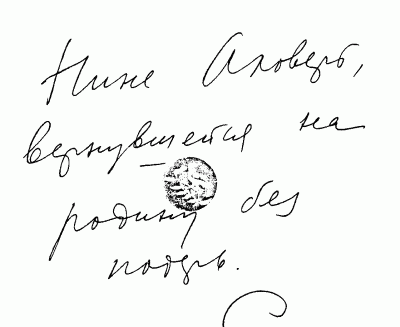 Нине Аловерт,
вернувшейся на
родину без
потерь.